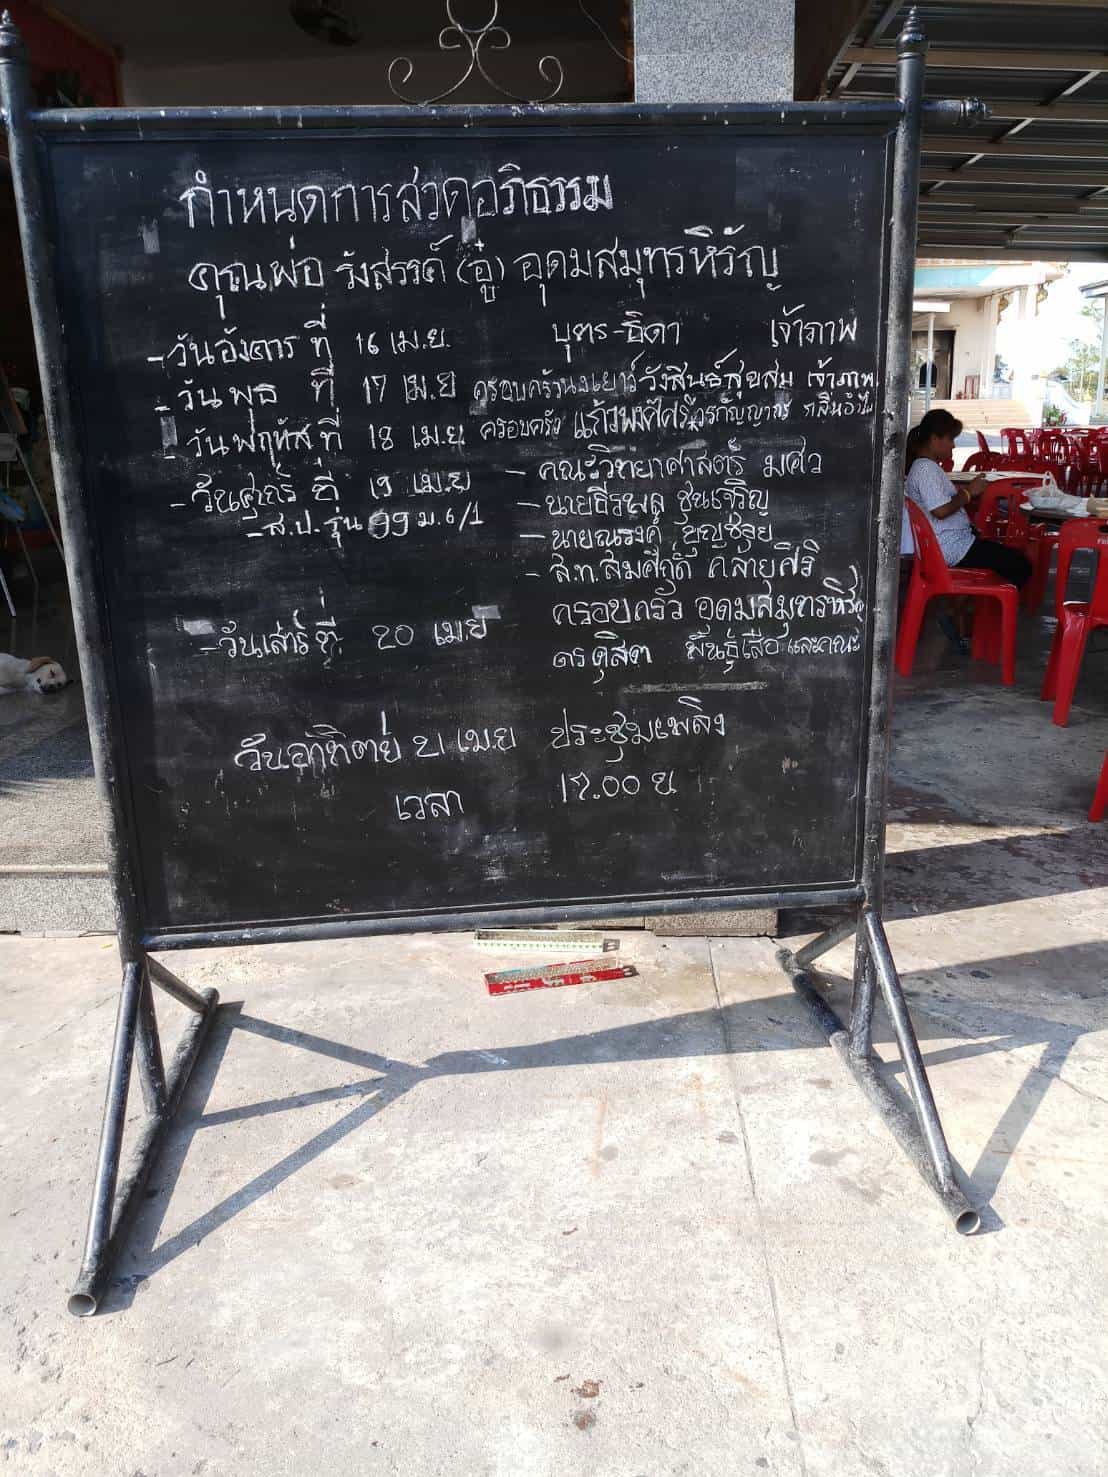 กำหนดการสวดอภิธรรม
คุณพ่อ รังสรรค์ (อู๋) อุดมสมุทรหิรัญ
-วันอังคาร ที่ 16 เม.ย. บุตร-ธิดา เจ้าภาพ
-วันพุธ ที่ 17 เม.ย ครอบครัวนงเยาว์ วังสินธ์สุขสม เจ้าภาพ
-วันพฤหัส ที่ 18 เม.ย. ครอบครัว
-วันศุกร์ ที่ 19 เม.ย - คณะวิทยาศาสตร์ มศว
-ส.ป. รุ่น 99 ม.6/1 - นายธีรพล ชุนเจริญ
- นายณรงค์ บุญช่วย
- ส.ท. สมศักดิ์ คล้ายศิริ
-วันเสาร์ ที่ 20 เมย ครอบครัว อุดมสมุทรหิรัญ
ดร ดุสิตา พันธุ์เสือ และคณะ
วันอาทิตย์ 21 เม.ย ประชุมเพลิง
เวลา 17.00 น